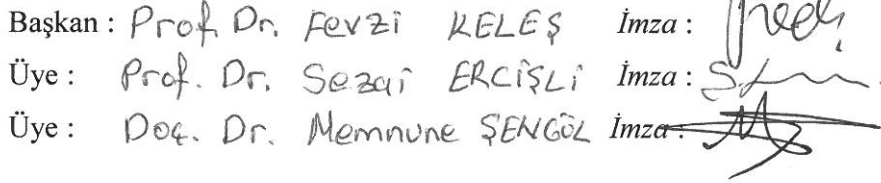 Başkan : Prof. Dr. Fevzi KELEŞ İmza :
Üye : Prof. Dr. Sezai ERCİŞLİ İmza :
Üye : Doç. Dr. Memnune ŞENGÜL İmza :